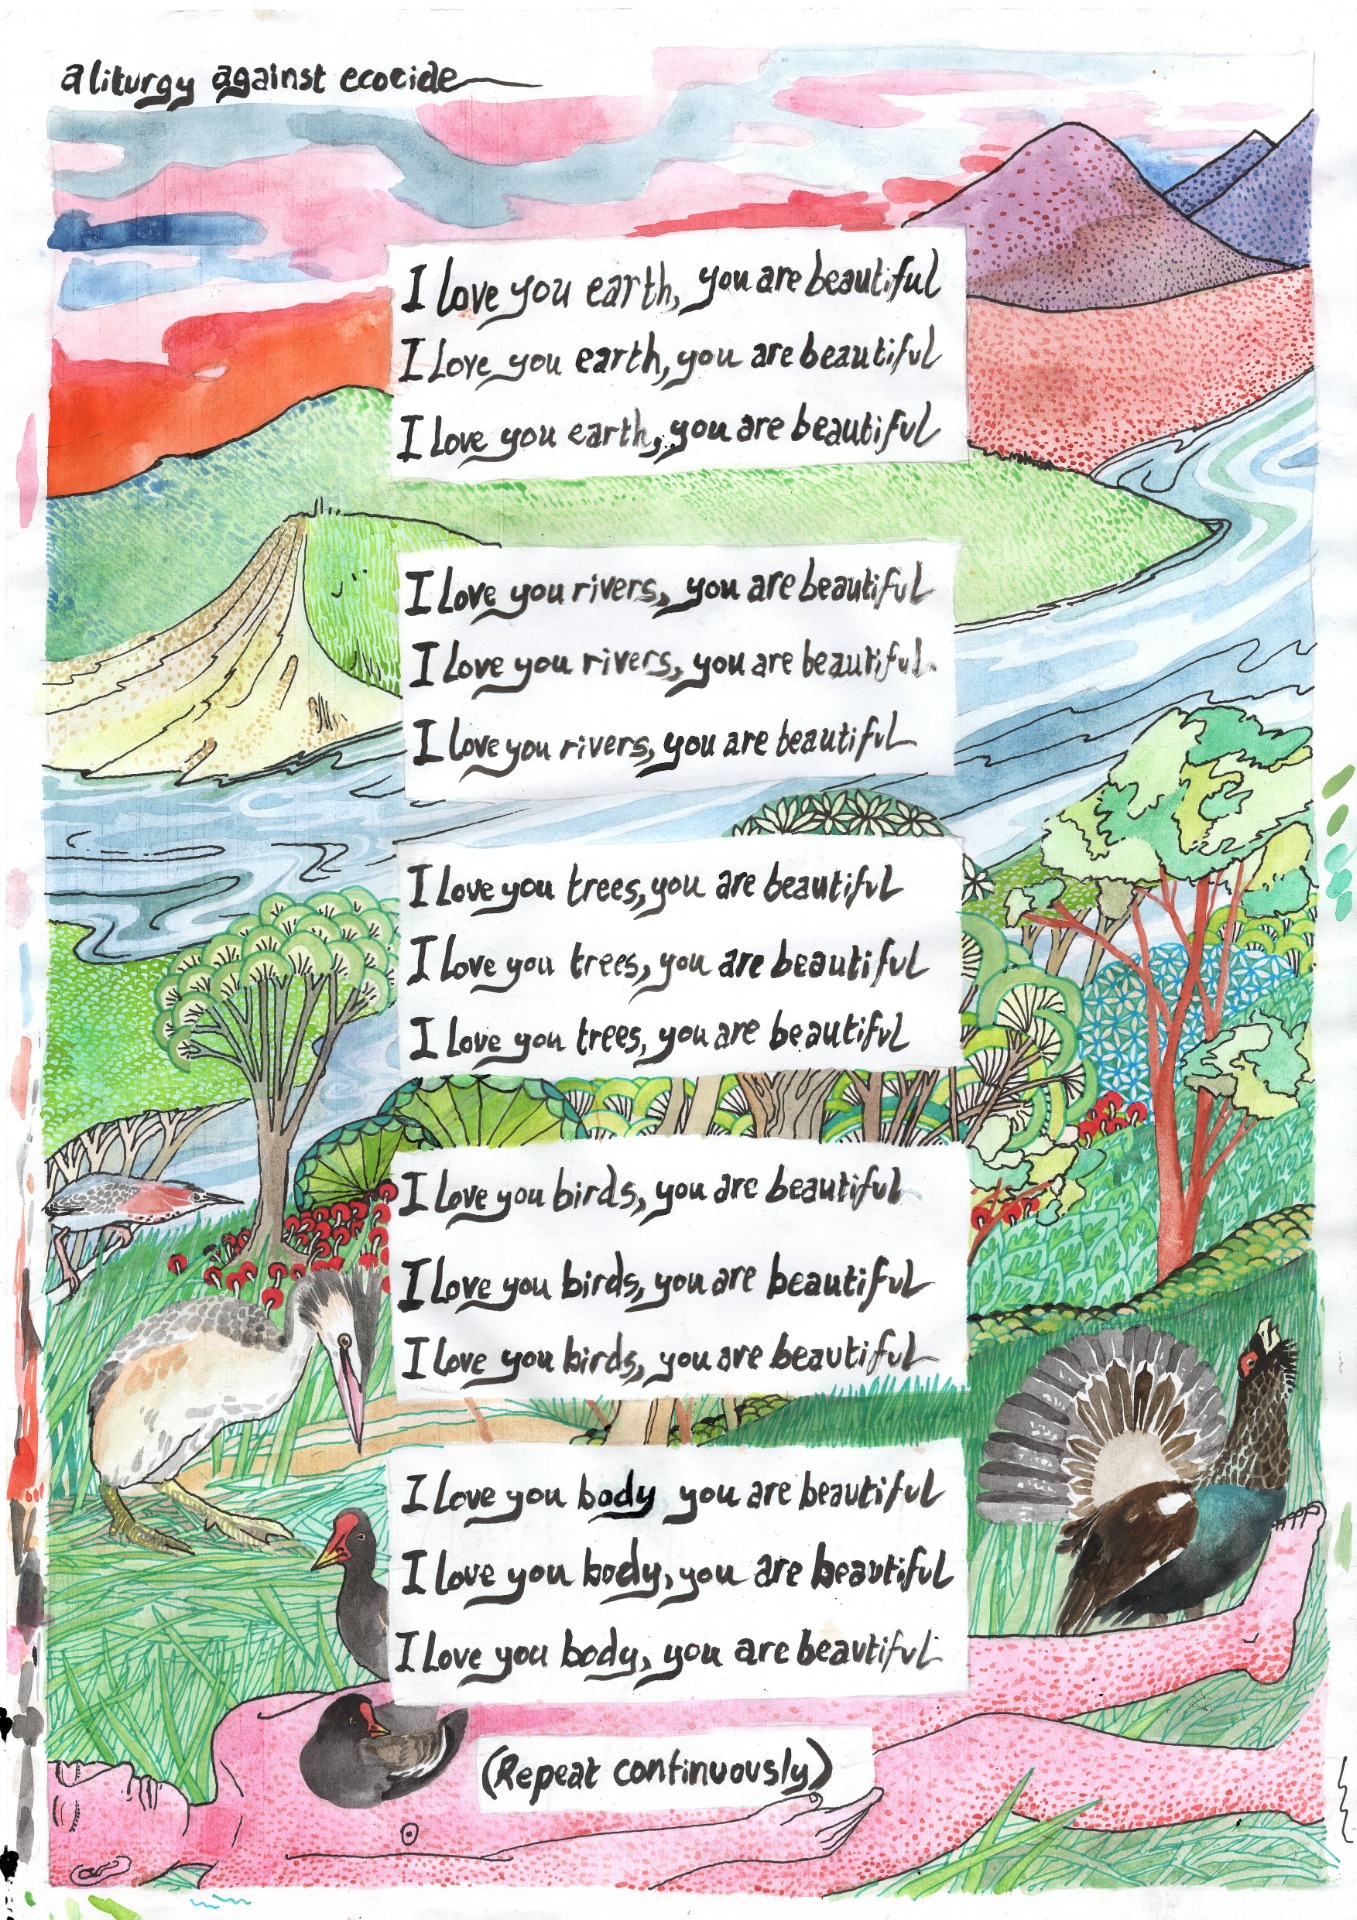 a liturgy against ecocide
I love you earth, you are beautiful
I love you earth, you are beautiful
I love you earth, you are beautiful
I love you rivers, you are beautiful
I love you rivers, you are beautiful.
I love you rivers, you are beautiful
I love you trees, you are beautiful
I love you trees, you are beautiful
I love you trees, you are beautiful
I love you birds, you are beautiful
I love you birds, you are beautiful
I love you birds, you are beautiful
I love you body you are beautiful
I love you body, you are beautiful
I love you body, you are beautiful
(Repeat continuously)